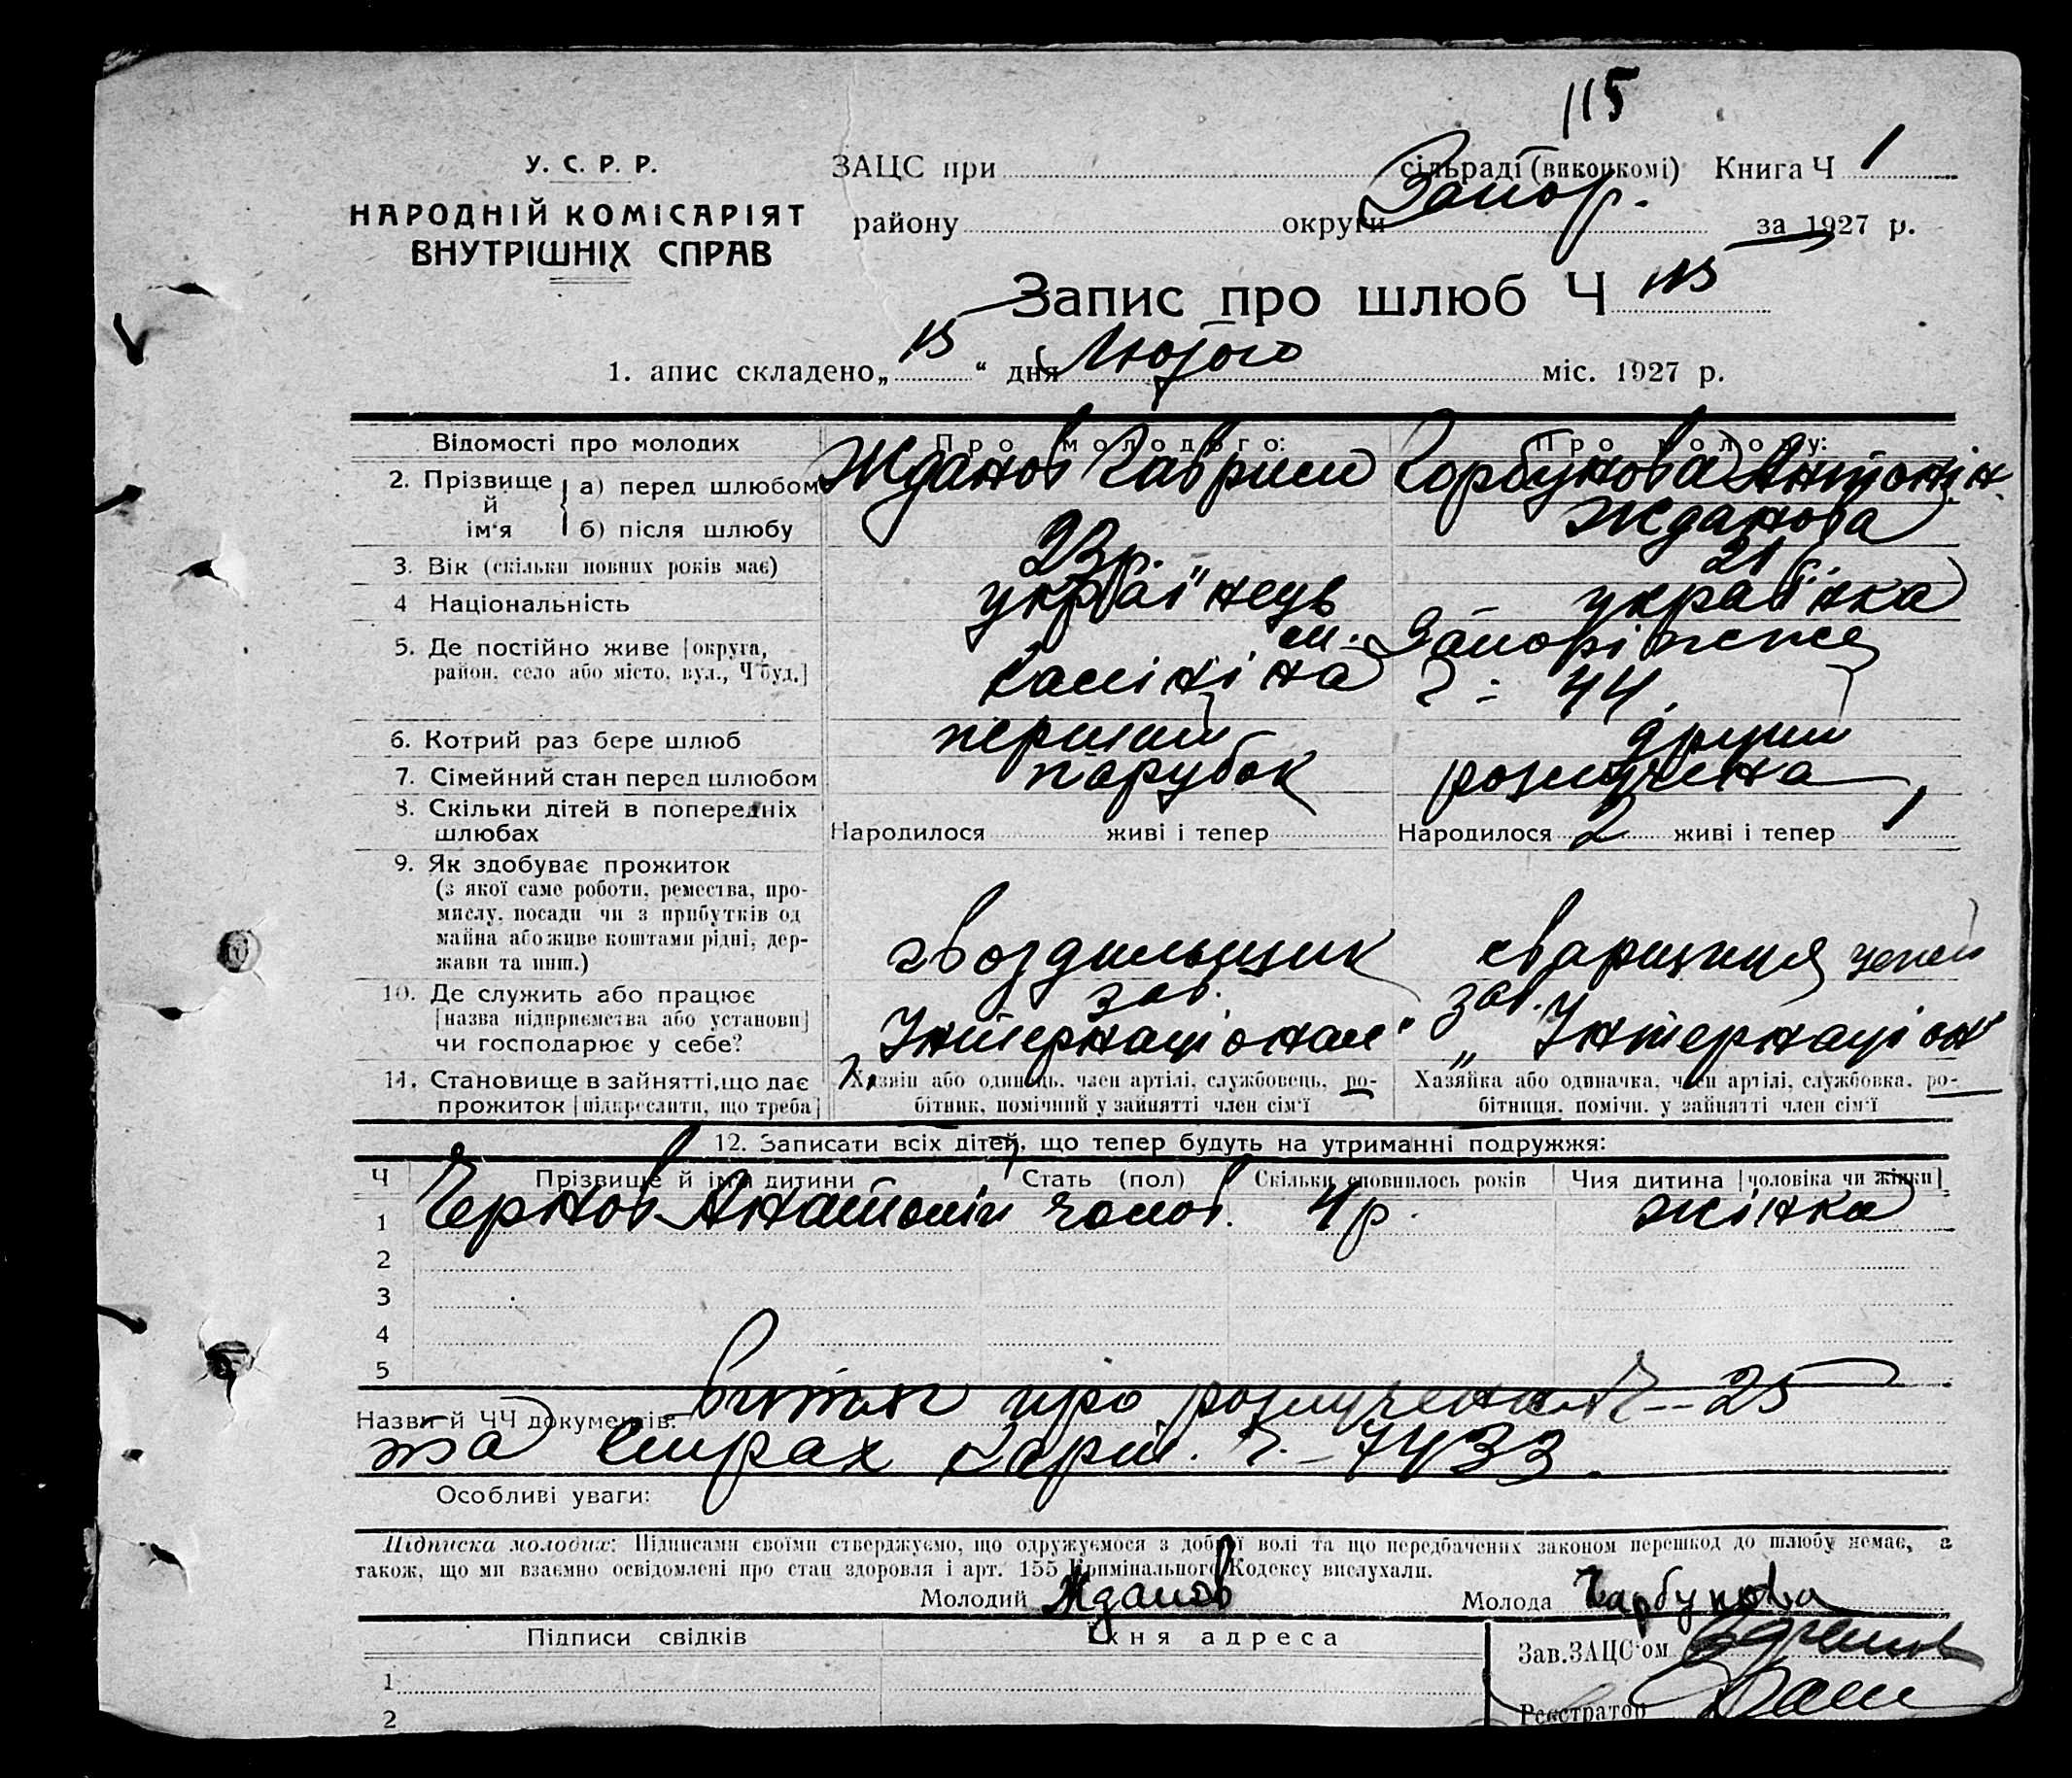 115
У. С. Р. Р.
НАРОДНІЙ КОМІСАРІЯТ
ВНУТРІШНІХ СПРАВ
ЗАЦС при сільраді (виконкомі) Книга Ч 1
району округи Запор. за 1927 р.
Запис про шлюб Ч 115
1. апис складено „ 15 “ дня Лютого міс. 1927 р.
Відомості про молодих Про молодого: Про молоду:
2. Прізвище й ім‘я а) перед шлюбом Жданов Гаврило Горбунова Антонін
б) після шлюбу Жданова
3. Вік (скільки повних років має) 23 р. 21 р.
4 Національність українець українка
5. Де постійно живе [округа, м. Запоріжжя
район, село або місто, вул., Ч буд.] Калініна Ч 44
6. Котрий раз бере шлюб перший другий
7. Сімейний стан перед шлюбом парубок розлучена
8. Скільки дітей в попередніх
шлюбах Народилося живі і тепер Народилося 2 живі і тепер 1
9. Як здобуває прожиток
(з якої саме роботи, ремества, про-
мислу, посади чи з прибутків од
майна або живе коштами рідні, дер-
жави та инш.) гвоздильщик сварщиця цепей
10. Де служить або працює зав. зав.
[назва підприємства або установи]
чи господарює у себе? „Інтернаціонал“ „Інтернаціон“
11. Становище в зайнятті, що дає Хазяїн або одинець, член артілі, службовець, ро- Хазяйка або одиначка, член артілі, службовка, ро-
прожиток [підкреслити, що треба] бітник, помічний у зайнятті член сім‘ї бітниця, помічн. у зайнятті член сім‘ї
12. Записати всіх дітей, що тепер будуть на утриманні подружжя:
Ч Прізвище й імя дитини Стать (пол) Скільки сповнилось років Чия дитина [чоловіка чи жінки]
1 Чернов Анатолій чолов. 4 р. жінка
2
3
4
5
Назви й ЧЧ документів: витяг про розлучення Ч – 25
та страх карт. Ч – 7433.
Особливі уваги:
Підписка молодих: Підписами своїми стверджуємо, що одружуємося з доброї волі та що передбачених законом перешкод до шлюбу немає, а
також, що ми взаємно освідомлені про стан здоровля і арт. 155 Кримінального Кодексу вислухали.
Молодий Жданов Молода Гарбунова
Підписи свідків Їхня адреса
Зав. ЗАЦС‘ом
1
Реєстратор
2